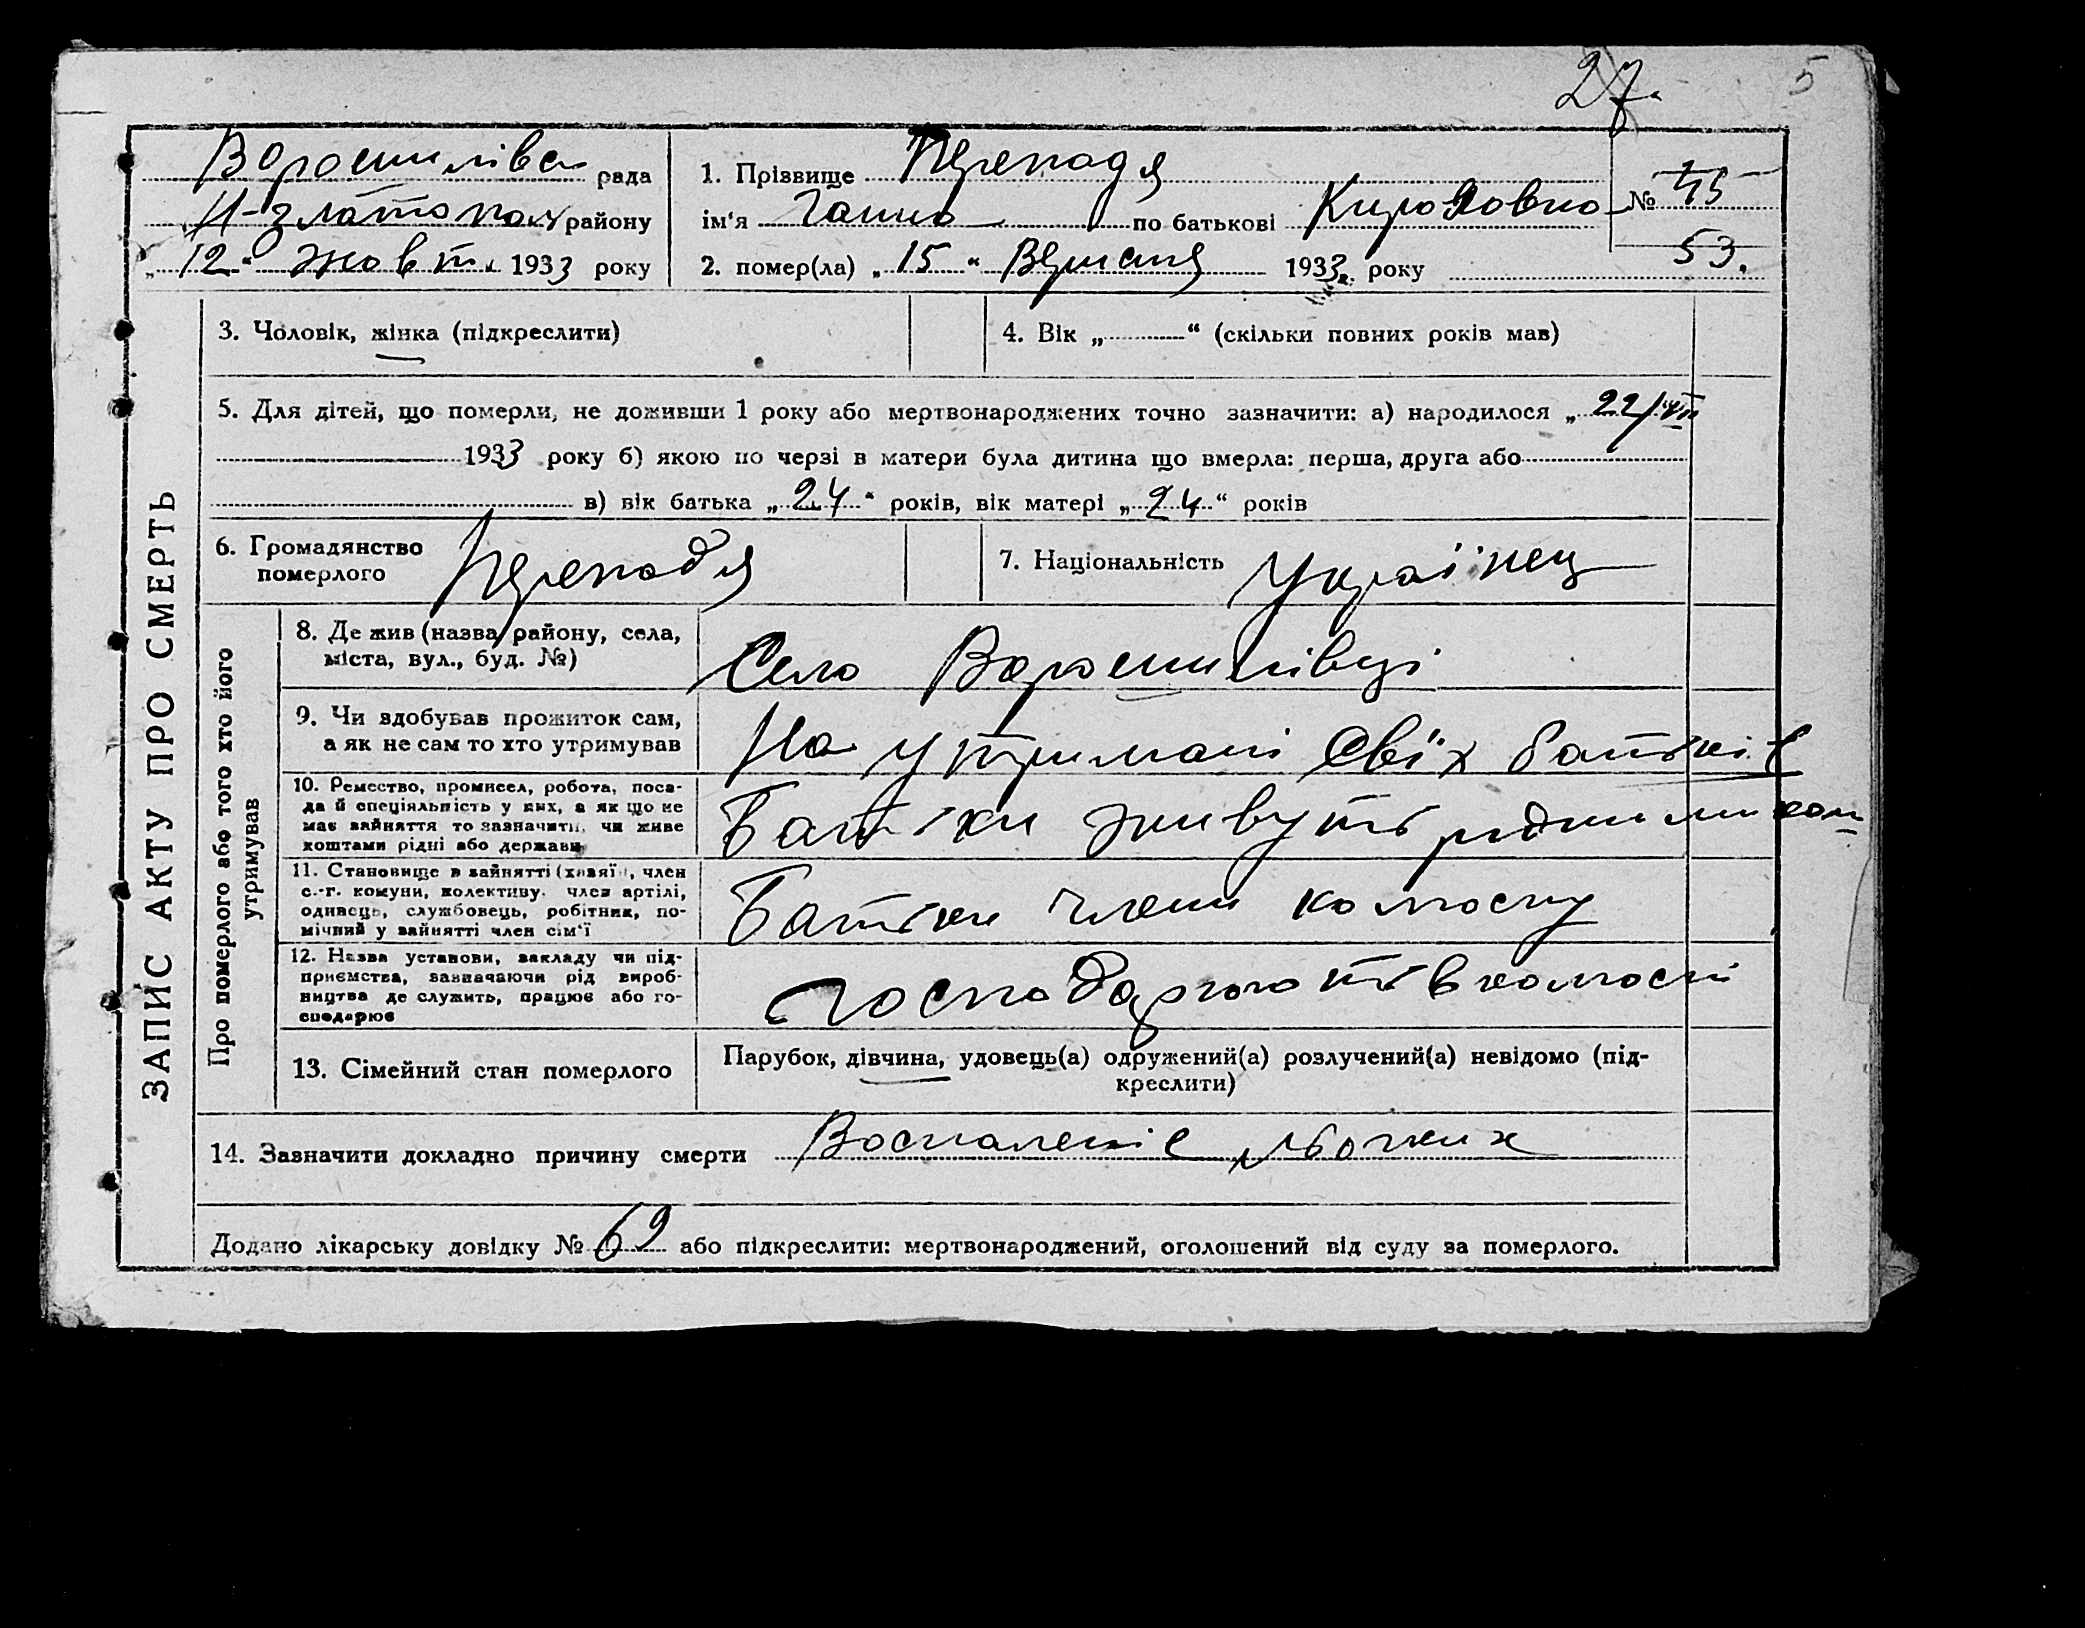 27.
5
Ворошиловс рада
Н-златополь району
„12“ жовтн 1933 року
1. Прізвище Перепадя
ім'я Ганна по батькові
№ 45
53.
2. помер(ла) „15“ Вересня 1933 року
ЗАПИС АКТУ ПРО СМЕРТЬ
3. Чоловік, жінка (підкреслити)
4. Вік „ “ (скільки повних років мав)
5. Для дітей, що померли, не доживши 1 року або мертвонароджених точно зазначити: а) народилося „22/VII
1933 року б) якою по черзі в матери була дитина що вмерла: перша, друга або
в) вік батька „24“ років, вік матері „24“ років
6. Громадянство
померлого
Перепадя
7. Національність Українец
Про померлого або того хто його
утримував
8. Де жив (назва району, села,
міста, вул., буд. №)
Село Ворошилівці
9. Чи здобував прожиток сам,
а як не сам то хто утримував
На утримані свіїх батьків
10. Ремество, промисел, робота, поса-
да й спеціяльність у них, а як що не
має вайняття то зазначити, чи живе
коштами рідні або держави
Батьки живуть рідними кош
11. Становище в зайнятті (хазяїн, член
с.-г. комуни, колективу, член артілі,
одинець, службовець, робітник, по-
мічний у зайнятті член сім'ї
Батьки члени колгоспу
12. Назва установи, закладу чи під-
приємства, зазначаючи рід вироб-
ництва де служить, працює або го-
сподарює
господарюють в колгоспі
13. Сімейний стан померлого
Парубок, дівчина, удовець(а) одружений(а) розлучений(а) невідомо (під-
креслити)
14. Зазначити докладно причину смерти Воспаленіє льогких
Додано лікарську довідку № 69 або підкреслити: мертвонароджений, оголошений від суду за померлого.